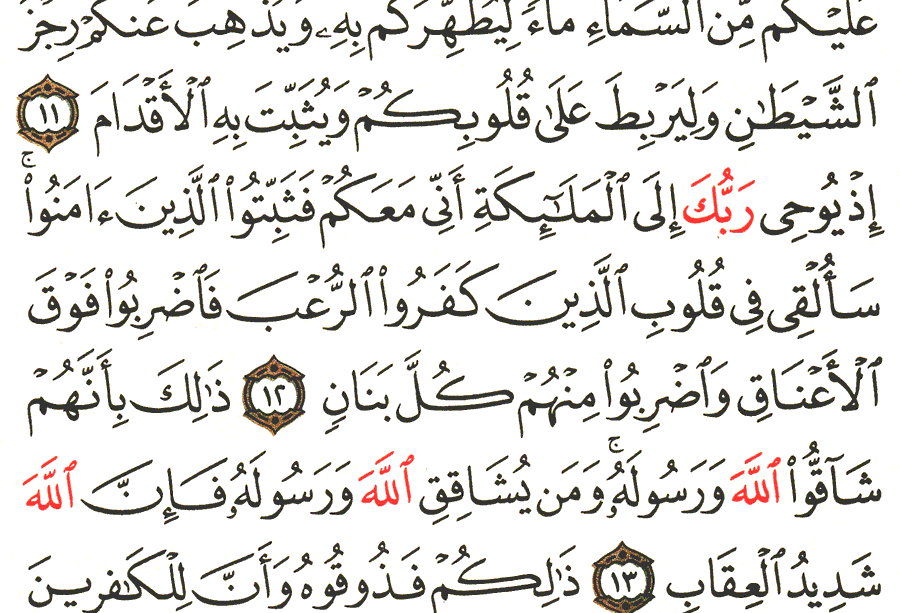 عَلَيْكُم مِّنَ ٱلسَّمَآءِ مَآءً لِّيُطَهِّرَكُم بِهِۦ وَيُذْهِبَ عَنكُمْ رِجْزَ
ٱلشَّيْطَٰنِ وَلِيَرْبِطَ عَلَىٰ قُلُوبِكُمْ وَيُثَبِّتَ بِهِ ٱلْأَقْدَامَ ١١
إِذْ يُوحِى رَبُّكَ إِلَى ٱلْمَلَٰٓئِكَةِ أَنِّى مَعَكُمْ فَثَبِّتُوا۟ ٱلَّذِينَ ءَامَنُوا۟ ۚ
سَأُلْقِى فِى قُلُوبِ ٱلَّذِينَ كَفَرُوا۟ ٱلرُّعْبَ فَٱضْرِبُوا۟ فَوْقَ
ٱلْأَعْنَاقِ وَٱضْرِبُوا۟ مِنْهُمْ كُلَّ بَنَانٍ ١٢ ذَٰلِكَ بِأَنَّهُمْ
شَآقُّوا۟ ٱللَّهَ وَرَسُولَهُۥ ۚ وَمَن يُشَاقِقِ ٱللَّهَ وَرَسُولَهُۥ فَإِنَّ ٱللَّهَ
شَدِيدُ ٱلْعِقَابِ ١٣ ذَٰلِكُمْ فَذُوقُوهُ وَأَنَّ لِلْكَٰفِرِينَ